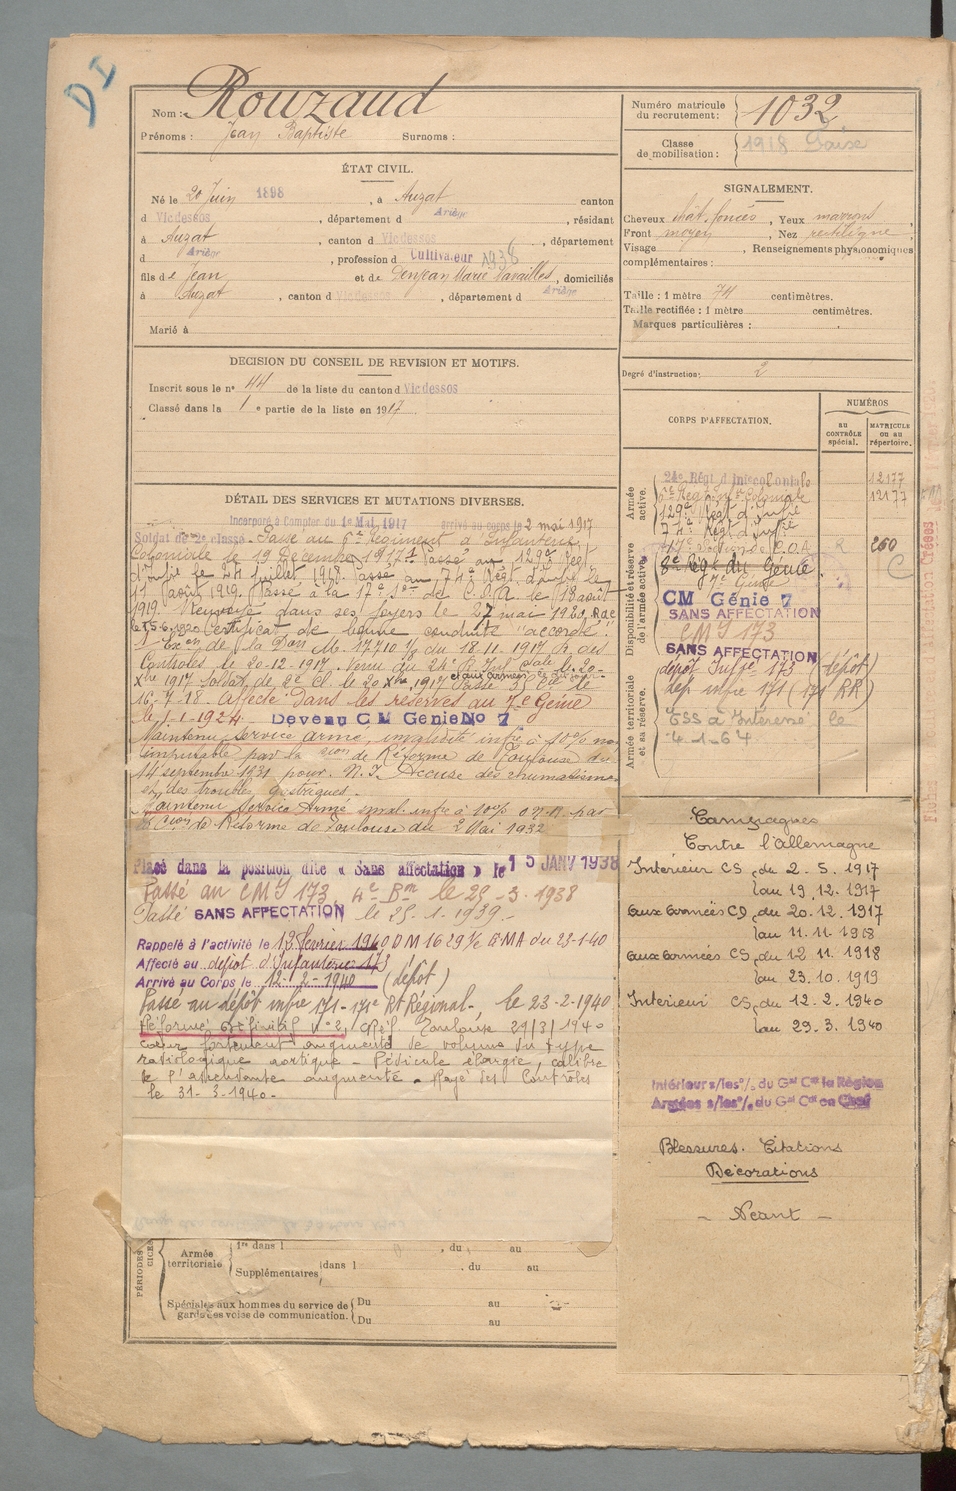 DI
Nom : Rouzaud
Prénoms : Jean Baptiste Surnoms :
Numéro matricule du recrutement : 1032
Classe de mobilisation : 1918
ÉTAT CIVIL.
Né le 20 Juin 1898, à Auzat canton
d Vicdessos, département d Ariège, résidant
à Auzat, canton d Vicdessos, département
d Ariège, profession d Cultivateur 1938
fils de Jean et de Marie, domiciliés
à Auzat, canton d Vicdessos, département d Ariège
Marié à
SIGNALEMENT.
Cheveux chât. foncés, Yeux marrons
Front moyen, Nez rectiligne
Visage, Renseignements physionomiques
complémentaires :
Taille : 1 mètre 74 centimètres.
Taille rectifiée : 1 mètre centimètres.
Marques particulières :
Degré d'instruction : 2
DECISION DU CONSEIL DE REVISION ET MOTIFS.
Inscrit sous le n° 44 de la liste du canton d Vicdessos
Classé dans la 1e partie de la liste en 1917.
CORPS D'AFFECTATION.
NUMÉROS
AU CONTRÔLE spécial.
MATRICULE ou au répertoire.
Armée active.
24e Régt d'Inf coloniale 12177
6e Régt Inf Coloniale 12177
129e Régt d'Infie
74e Régt d'Infie
C.O.A 260
Disponibilité et réserve de l'armée active.
8e Régt du Génie
7e Génie
CM Génie 7
SANS AFFECTATION
CMI 173
SANS AFFECTATION
Armée territoriale et sa réserve.
dépôt Infie 173 (dépôt)
dép infie 171 (171 RR)
le
4-1-64
DÉTAIL DES SERVICES ET MUTATIONS DIVERSES.
Incorporé à Compter du 1er Mai 1917 arrivé au corps le 2 mai 1917
Soldat de 2e classe. Passé au 6e Régiment d'Infanterie
Coloniale le 19 Décembre 1917. Passé au 129e Régt
d'Infie le 24 Juillet 1918. Passé au 74e Régt d'Infie le
11 Août 1919. Passé à la 17e Son de C.O.A. le 18 août
1919. Renvoyé dans ses foyers le 27 mai 1920,
Certificat de bonne conduite "accordé".
Exon de la Don M. 17710 1/8 du 18.11.1917 R. des
Controles le 20-12-1917. Venu du 24e R. Inf Cale le 20-
Xbre 1917 Soldat de 2e Cl. le 20 Xbre 1917
16-7-18. Affecté dans les réserves au 7e Génie
le 1-1-1924. Devenu CM Génie No 7
Maintenu Service armé, invalidité infre à 10% non
imputable par la Cion de Réforme de Toulouse du
14 septembre 1931 pour : N.I. Accuse des rhumatismes
et des troubles gastriques.
Maintenu Service Armé inval. infre à 10% par
la Cion de Réforme de Toulouse du 2 Mai 1932
Placé dans la position dite « Sans affectation » le 15 JANV 1938
Passé au CMI 173 4e Bon le 25-3-1938
Passé SANS AFFECTATION le 25.1.1939.-
Rappelé à l'activité le 12 février 1940 DM 1629 ½ EMA du 23-1-40
Affecté au dépôt d'Infanterie 173
Arrivé au Corps le 12-2-1940 (dépôt)
Passé au dépôt infie 171-171e Rt Régional, le 23-2-1940
Réformé définitif n° 2, Toulouse 29/3/1940
cœur fortement augmenté de volume du type
radiologique aortique - Pédicule élargie, calibre
de l'ascendante augmenté. Rayé des Contrôles
le 31-3-1940-
Campagnes
Contre l'Allemagne
Intérieur CS du 2.5.1917
au 19.12.1917
aux armées CD du 20.12.1917
au 11.11.1918
aux armées CS du 12 11.1918
au 23.10.1919
Intérieur CS du 12.2.1940
au 29.3.1940
Intérieur s/les % du Gal Ct la Région
Armées s/les % du Gal Ct en Chef
Blessures. Citations
Décorations
- Néant -
PÉRIODES
Armée territoriale
1re dans l , du au
Supplémentaires dans l , du au
Spéciales aux hommes du service de garde des voies de communication.
Du au
Du au